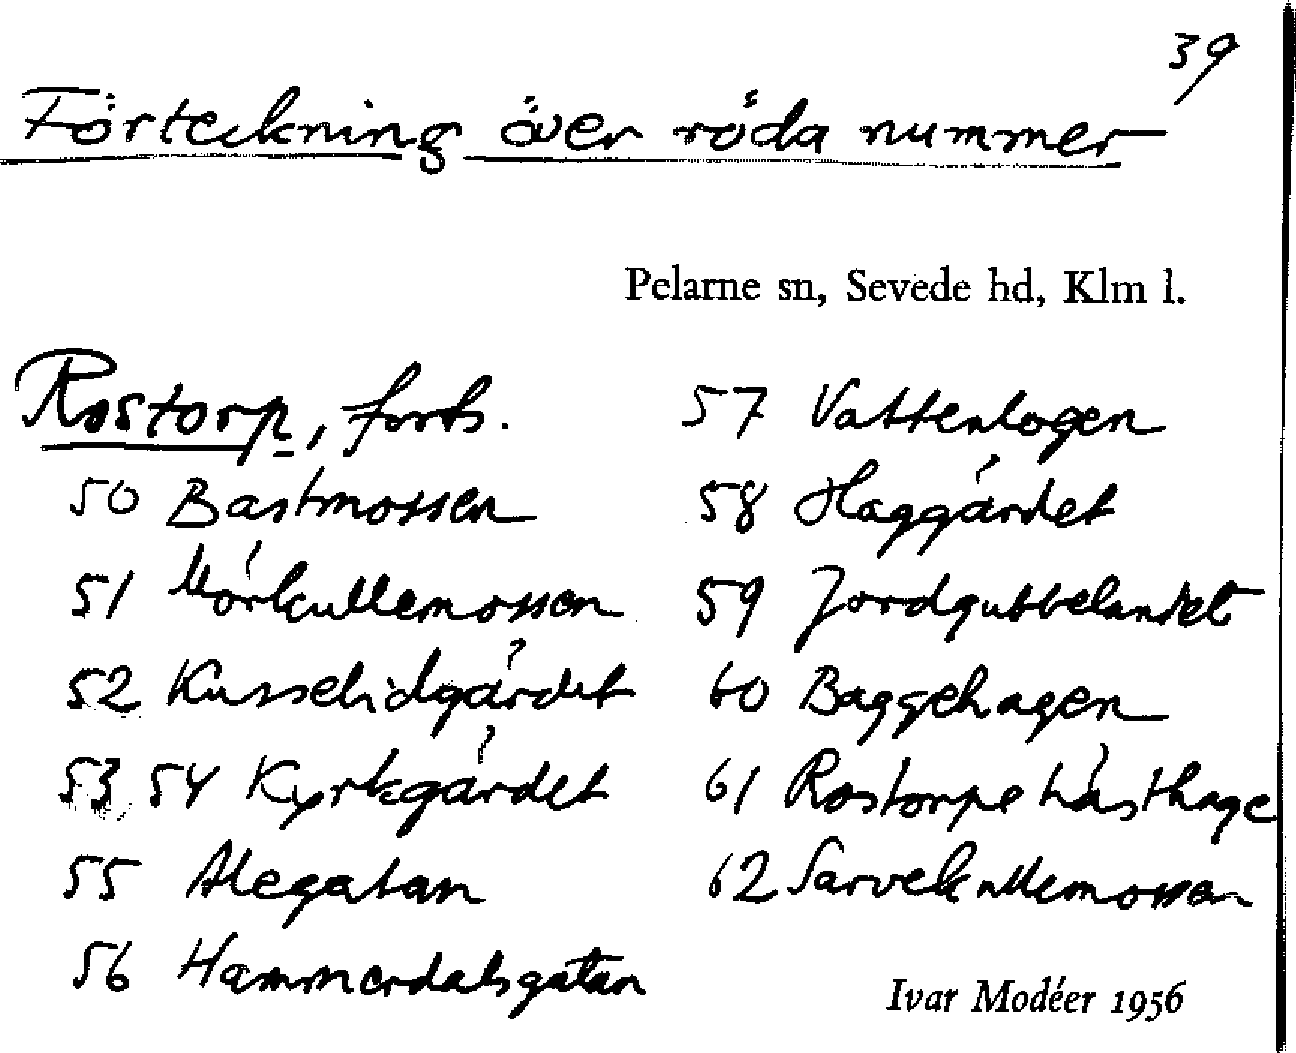 39
Förteckning över röda nummer
Pelarne sn, Sevede hd, Klm l.
Rostorp, forts.
50 Bastmossen
51 Mörkullemossen
52 Kusselidgärdet
53 54 Kyrkgärdet
55 Alegatan
56 Hammerdalsgatan
57 Vattenlogen
58 Haggärdet
59 Jordgubbelandet
60 Baggehagen
61 Rostorpe hästhage
62 Sarvekullemossen
Ivar Modéer 1956